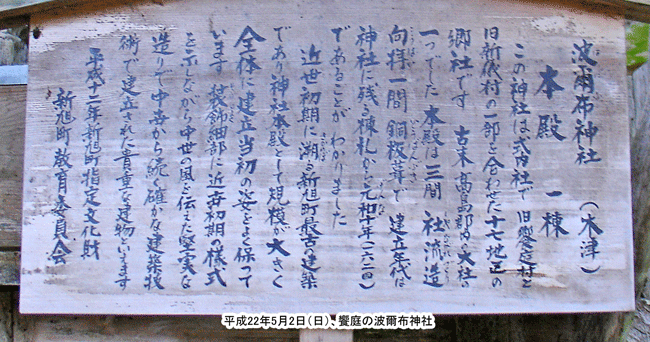 波爾布神社（木津）
本殿　一棟
この神社は式内社で　旧饗庭村と
旧新儀村の一部を合わせた十七地区の
郷社です　古来　高島郡内の大社の
一つでした　本殿は三間　社流造
向拝一間　銅板葺で　建立年代は
神社に残る棟札から元和六年（一六二〇）
であることが　わかりました
近世初期に溯る新旭町最古建築
であり神社本殿として規模が大きく
全体に建立当初の姿をよく保って
います　装飾細部に近世初期の様式
を示しながら中世の風を伝えた堅実な
造りで中世から続く確かな建築技
術で建立された貴重な建物といえます
平成十一年新旭町指定文化財
新旭町教育委員会
平成22年5月2日（日）、饗庭の波爾布神社